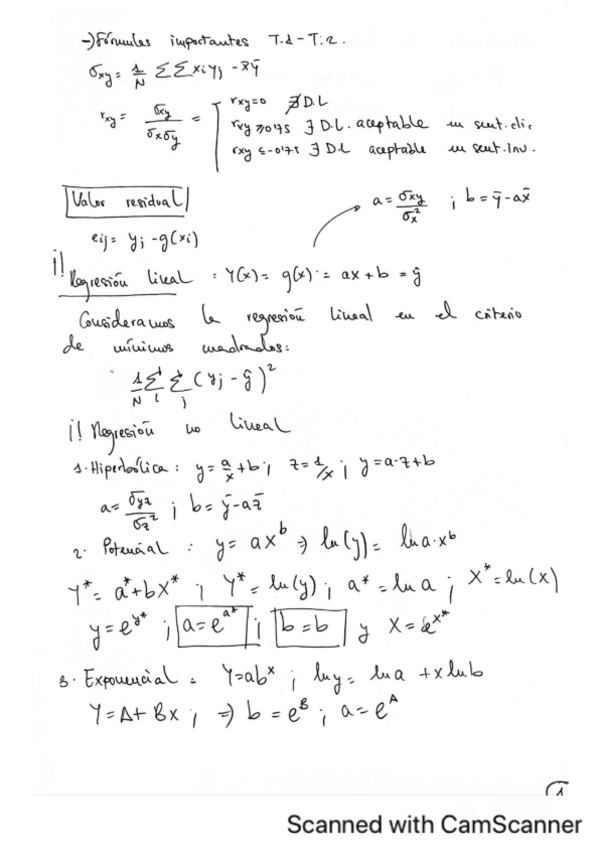 →) Fórmulas importantes T.1-T.2.
σxy = 1/N ΣΣ xi yj - x̄ȳ
rxy = σxy/σxσy = { rxy=0 ∄ D.L
rxy ≥ 0'75 ∃ D.L. aceptable en sent. dir
rxy ≤ -0'75 ∃ D.L aceptable en sent. inv.
Valor residual
a = σxy/σx² ; b = ȳ - ax̄
eij = yj - g(xi)
¡! Regresión lineal : Y(x) = g(x) = ax + b = ŷ
Consideramos la regresión lineal en el criterio
de mínimos cuadrados:
1/N Σi Σj (yj - ŷ)²
¡! Regresión no lineal
1. Hiperbólica : y = a/x + b ; z = 1/x ; y = a·z + b
a = σyz/σz² ; b = ȳ - az̄
2. Potencial : y = ax^b ⇒ ln(y) = ln a·x^b
Y* = a* + bX* ; Y* = ln(y) ; a* = ln a ; X* = ln(x)
y = e^y* ; a = e^a* ; b = b y X = e^x*
3. Exponencial = Y = ab^x ; ln y = ln a + x ln b
Y = A + Bx ; ⇒ b = e^B ; a = e^A
1
Scanned with CamScanner